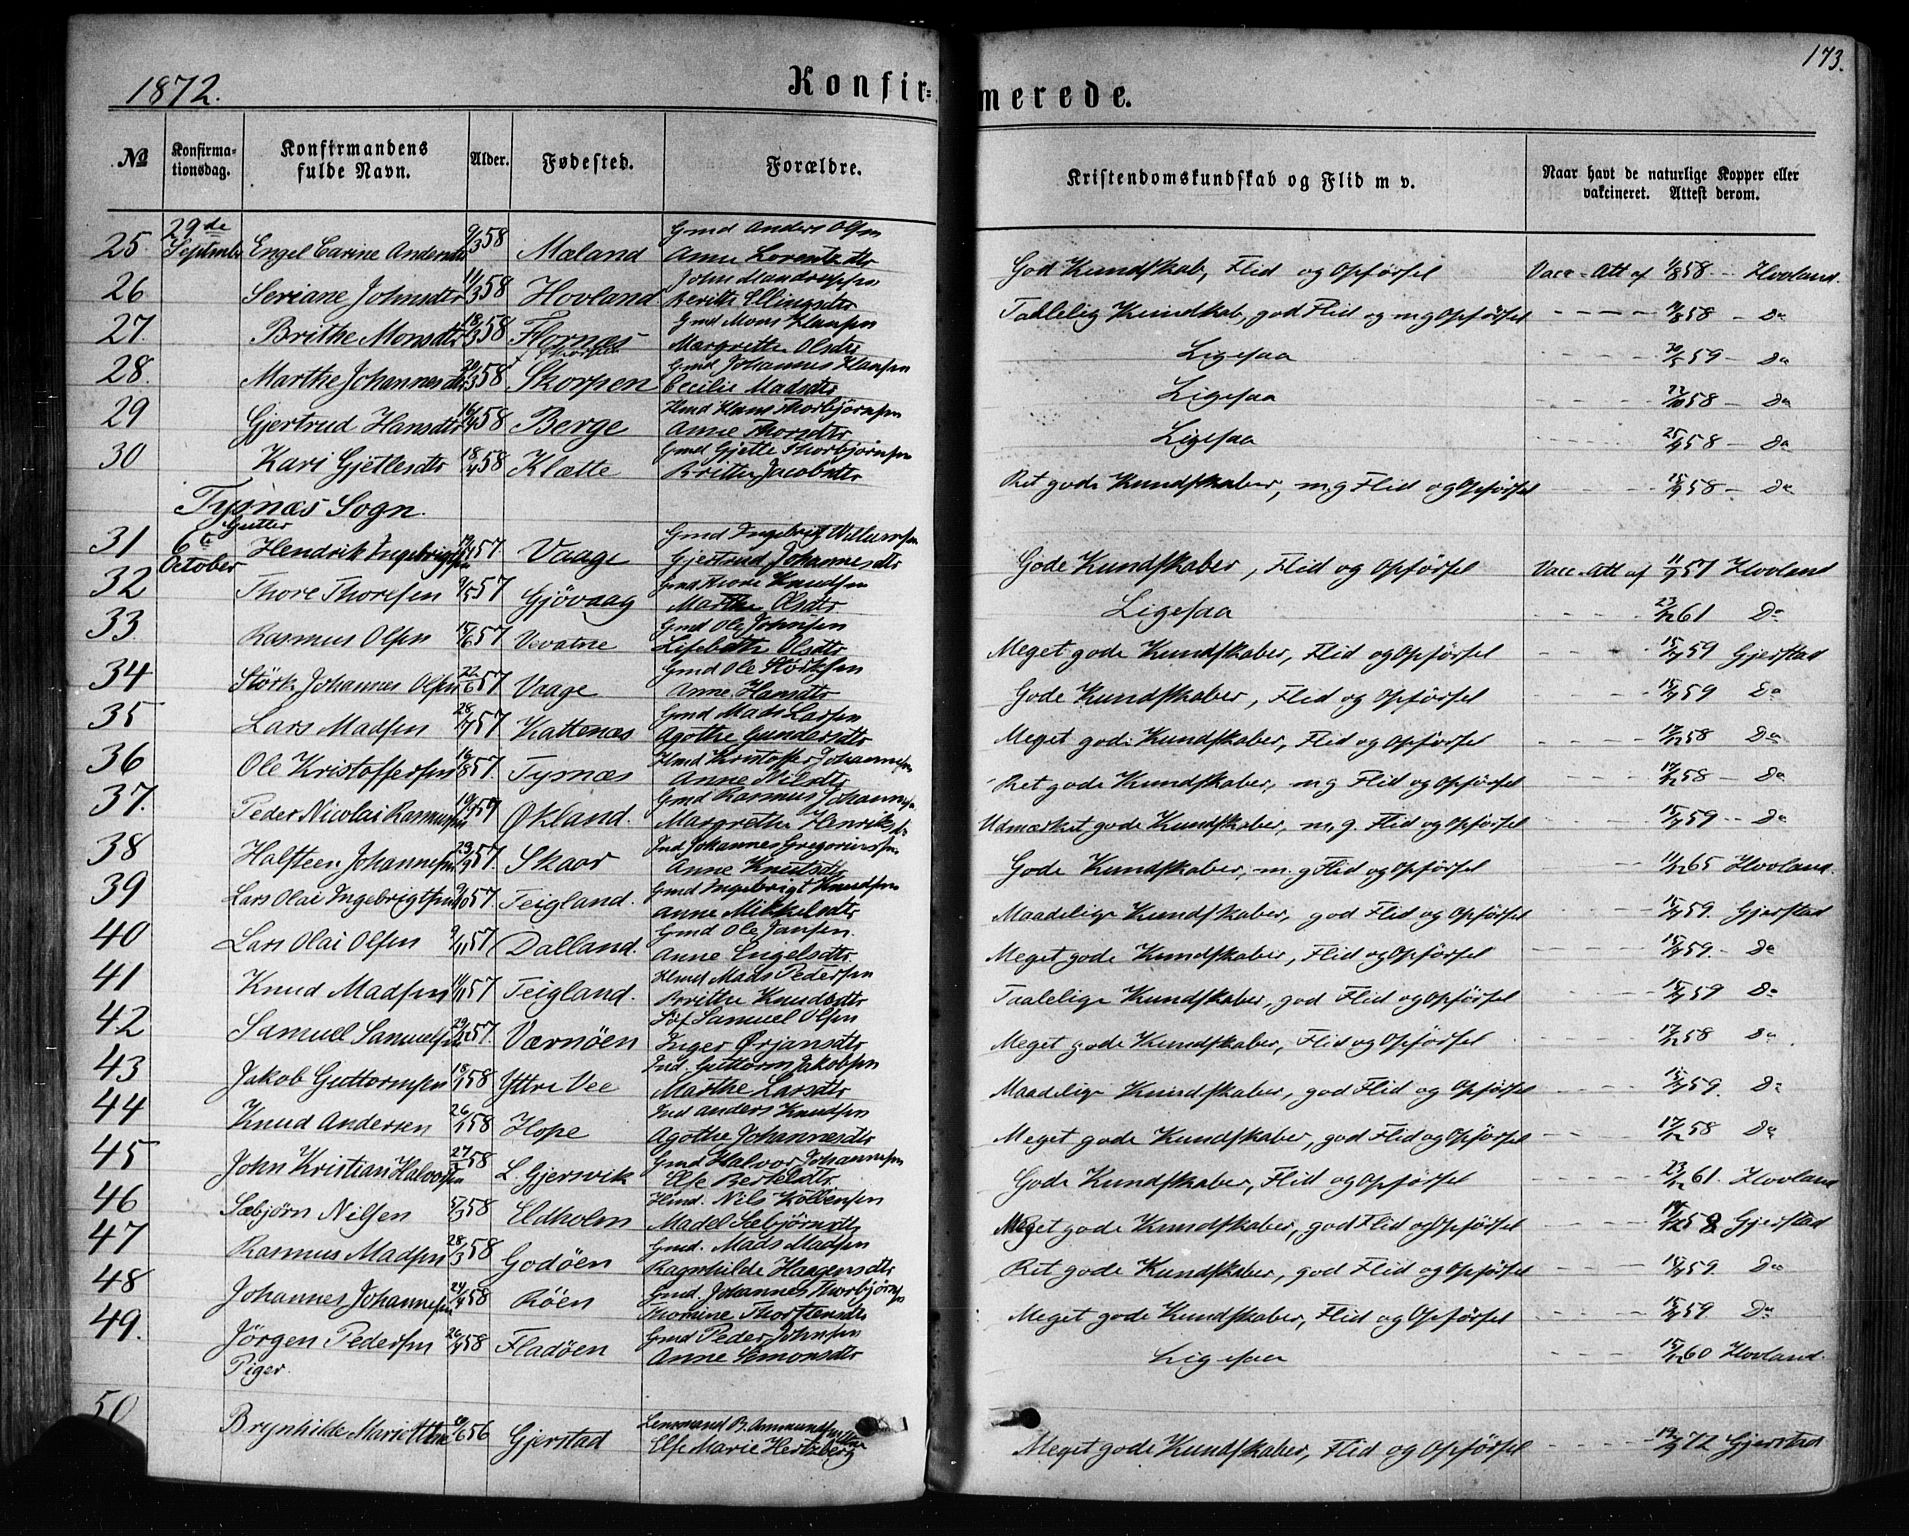 1872.
Konfir-
merede.
173.
No
Konfirma-
tionsdag.
Konfirmandens
fulde Navn.
Alder.
Fødested.
Forældre.
Kristendomskundskab og Flid m v.
Naar havt de naturlige Kopper eller
vakcineret. Attest derom.
29de
September
25. Engel Carine Andersdtr 9/3 58 Maland Gmd Anders Olsen
Anne Lorentsdtr God Kundskab, Flid og Opførsel Vacc-Att af 1/8 58 - Hovland.
26 Seriane Johnsdtr 11/3 58 Hovland John Mandrupsen
Beritte Ellingsdtr Taalelig Kundskab, god Flid og m g Opførsel 58 - Do
27. Brithe Monsdtr 18/3 58 Flornæs Gmd Mons Klausen
Margrethe Olsdtr Ligesaa 59 - Do
28. Marthe Johannesdtr 20/3 58 Skorpen Gmd Johannes Klausen
Cecilie Madsdtr Ligesaa 58 - Do
29 Gjertrud Hansdtr 16/4 58 Berge Hmd Hans Thorbjørnsen
Anne Thorsdtr Ligesaa 58 - Do
30 Kari Gjetlesdtr 18/4 58 Klætte Gmd Gjetle Thorbjørnsen
Britthe Jacobsdtr Ret gode Kundskaber, m g Flid og Opførsel 58 - Do
Tysnæs Sogn.
Gutter
6te
October
31 Hendrik Ingebrigtsen 57 Vaage Gmd Ingebrigt Willumsen
Gjertrud Johannesdtr Gode Kundskaber, Flid og Opførsel Vacc-Att af 11/9 57 Hovland
32 Thore Thoresen 9/5 57 Gjövaag Gmd Thore Knudsen
Marthe Olsdtr Ligesaa 23/12 61 Do
33 Rasmus Olsen 15/6 57 Vevatne Gmd Ole Johnsen
Lisebeth Olsdtr Meget gode Kundskaber, Flid og Opførsel 59 Gjerstad
34 Størk Johannes Olsen 22/6 57 Vaage Gmd Ole Størksen
Anne Hansdtr Gode Kundskaber, Flid og Opførsel 59 Do
35 Lars Madsen 28/7 57 Kattenæs Gmd Mads Larsen
Agothe Gundersdtr Meget gode Kundskaber, Flid og Opførsel 17/12 58 Do
36 Ole Kristoffersen 16/8 57. Tysnæs Hmd Kristoffer Johannesen
Anne Nilsdtr Ret gode Kundskaber, m g Flid og Opførsel 17/12 58 - Do
37. Peder Nicolai Rasmussen 57 Økland. Gmd Rasmus Johannesen
Margrethe Henriksdtr Udmærket gode Kundskaber, m. g. Flid og Opførsel 59 - Do
38 Halsteen Johannesen 29/9 57. Skaar Ind Johannes Gregoriussen
Anne Knutsdtr Gode Kundskaber, m. g Flid og Opførsel 11/12 65 Hovland.
39 Lars Olai Ingebrigtsen 9/10 57. Teigland. Gmd Ingebrigt Knudsen
Anne Mikkelsdtr Maadelige Kundskaber, god Flid og Opførsel 59. Gjerstad
40 Lars Olai Olsen 9/11 57 Dalland. Gmd Ole Jansen.
Anne Engelsdtr. Meget gode Kundskaber, Flid og Opførsel 59. Do
41 Knud Madsen 11/11 57 Teigland. Hmd Mads Pedersen
Brithe Knudsdtr Taalelige Kundskaber, god Flid og Opførsel 59 Do
42 Samuel Samuelsen 29/12 57. Værnöen Samuel Olsen
Inger Ørjansdtr Meget gode Kundskaber, Flid og Opførsel 17/12 58 Do
43 Jakob Guttormsen 18/1 58 Yttre Vee Ind. Guttorm Jakobsen
Marthe Larsdtr Maadelige Kundskaber, god Flid og Opførsel 59. Do
44 Knud Andersen 26/1 58 Hope Ind anders Knudsen
Agothe Johannesdtr Meget gode Kundskaber, god Flid og Opførsel 17/12 58 Do
45 John Kristian Halvorsen 58 L. Gjersvik Gmd Halvor Johannesen
Else Bertelsdtr Gode Kundskaber, Flid og Opførsel 23/12 61. Hovland
46 Sæbjörn Nilsen 5/3 58 Eldholm Hmd. Nils Kolbensen
Madel Sæbjørnsdtr Meget gode Kundskaber, god Flid og Opførsel 58 Gjerstad
47 Rasmus Madsen 28/3 58 Godöen Gmd. Mads Madsen
Ragnhilde Haagensdtr Ret gode Kundskaber, god Flid og Opførsel 59. Do
48 Johannes Johannesen 24/4 58 Röen Gmd. Johannes Thorbjörnsen
Thomine Thorstensdtr Meget gode Kundskaber, Flid og Opførsel 59 Do
49. Jörgen Pedersen 26/4 58 Fladöen Gmd Peder Johnsen
Anne Simonsdtr Ligesaa 15/12 60 Hovland.
Piger.
50 Brynhilde Marie 56 Gjerstad Lensmand B. Ammundsen
Else Marie Hertzberg Meget gode Kundskaber, Flid og Opførsel 72 Gjerstad